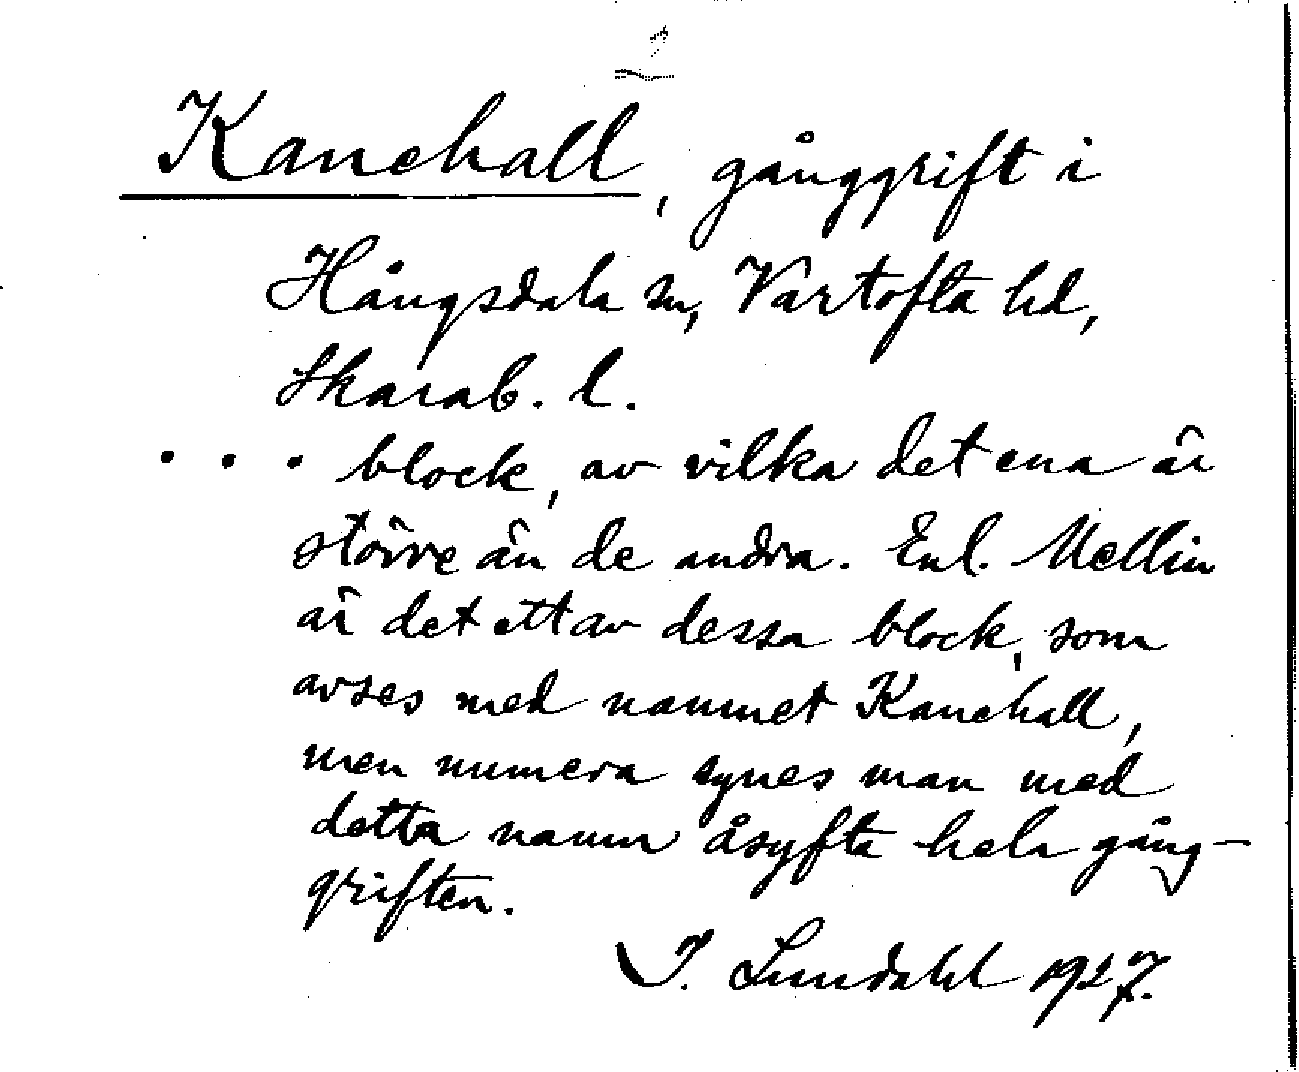 Kanehall, gånggrift i
Hångsdala sn, Vartofta hd,
Skarab. l.
. . . block, av vilka det ena är
större än de andra. Enl. Mellin
är det ett av dessa block, som
avses med namnet Kanehall,
men numera synes man med
detta namn åsyfta hela gång-
griften.
I. Lundahl 1927.